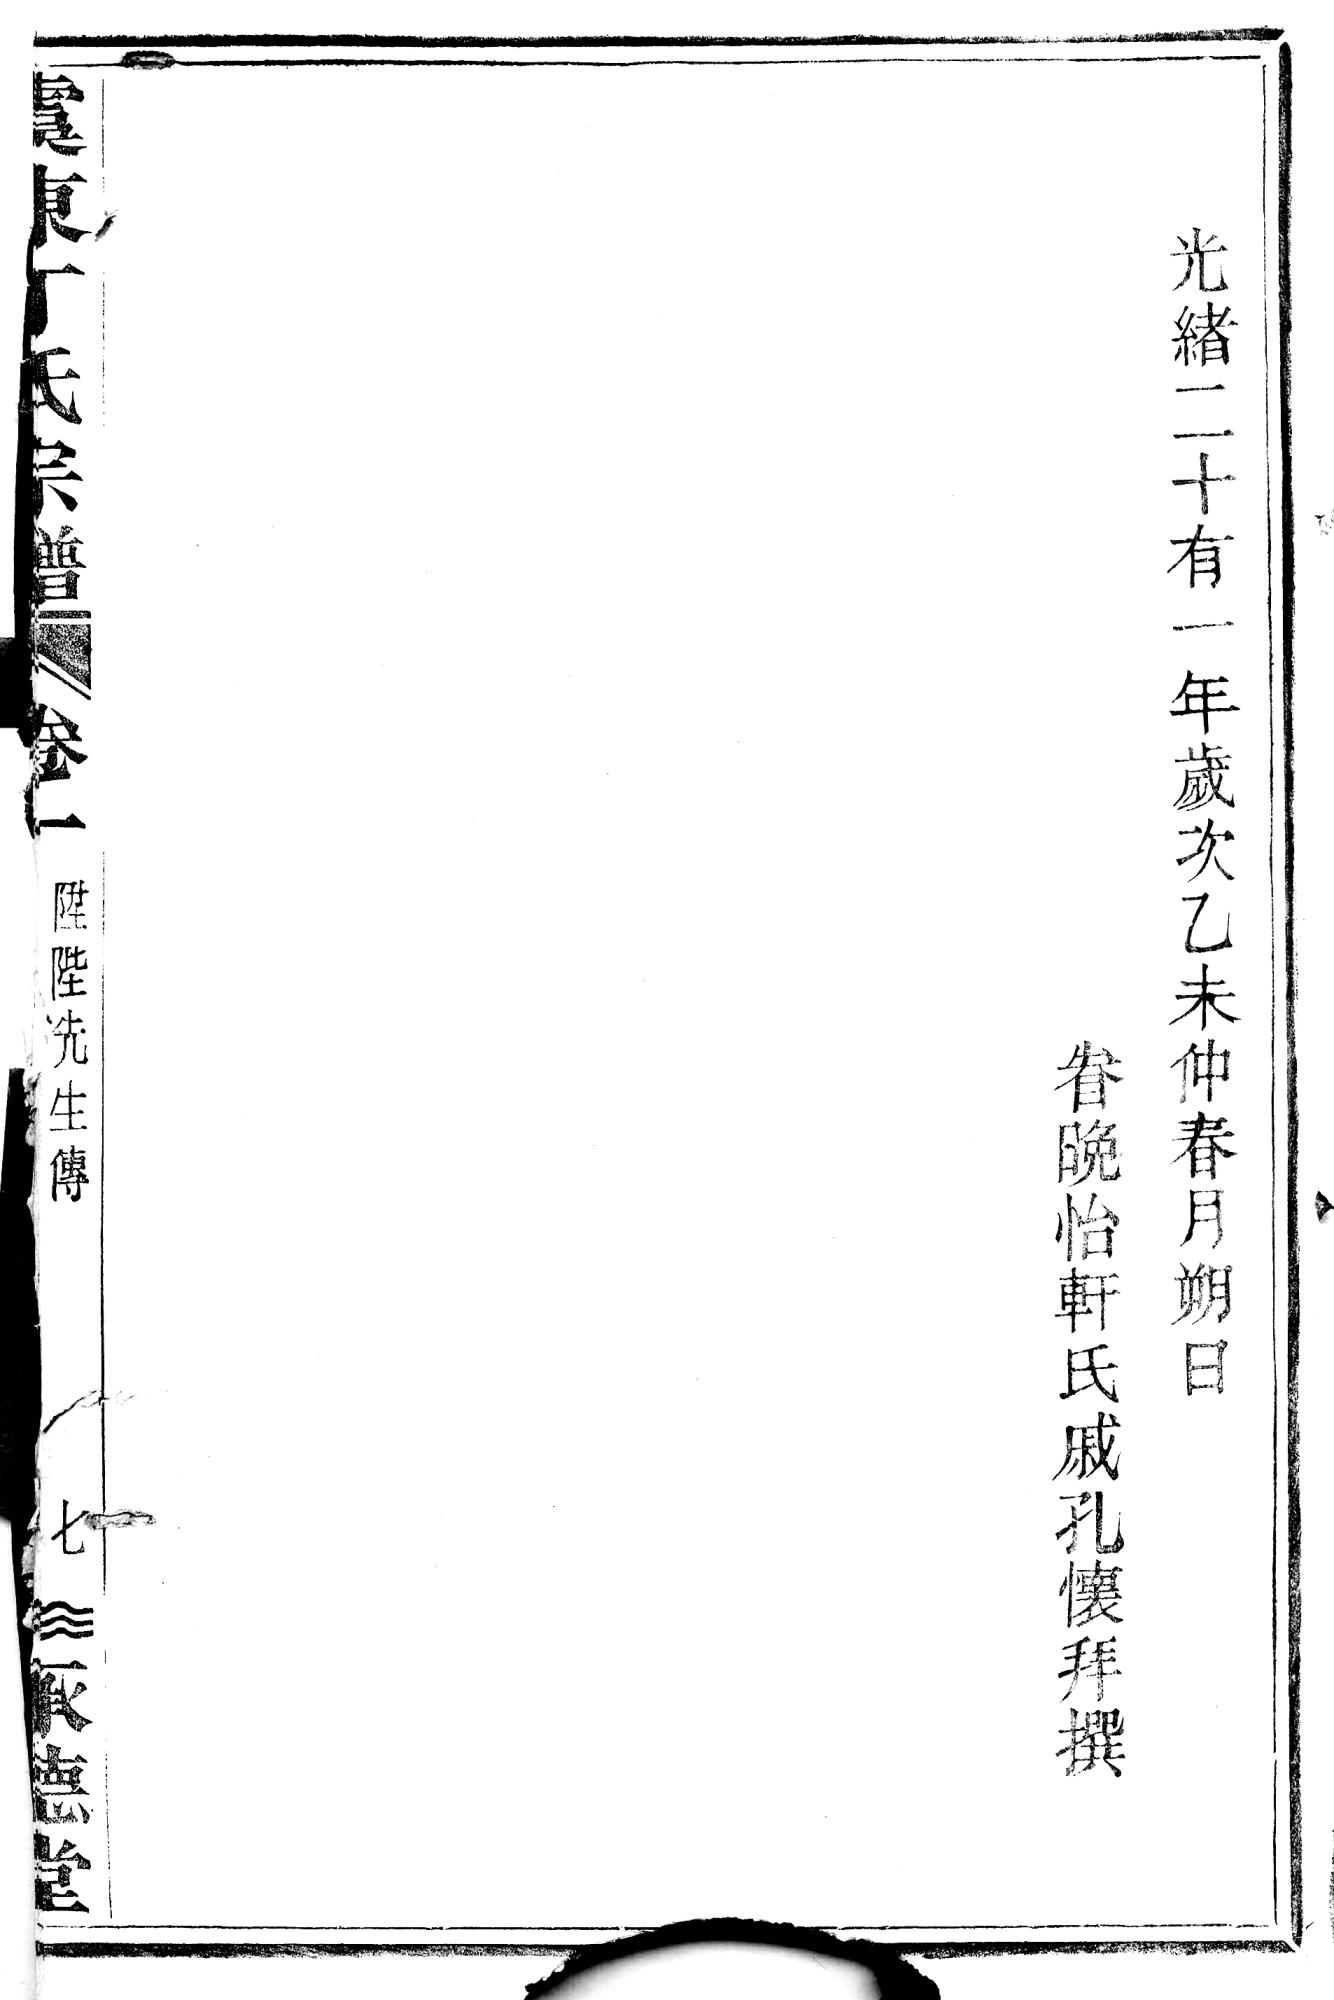 光緒二十有一年歲次乙未仲春月朔日
眷晚怡軒氏戚孔懷拜撰
虞東丁氏宗譜
卷一
陞陛先生傳
七
承德堂